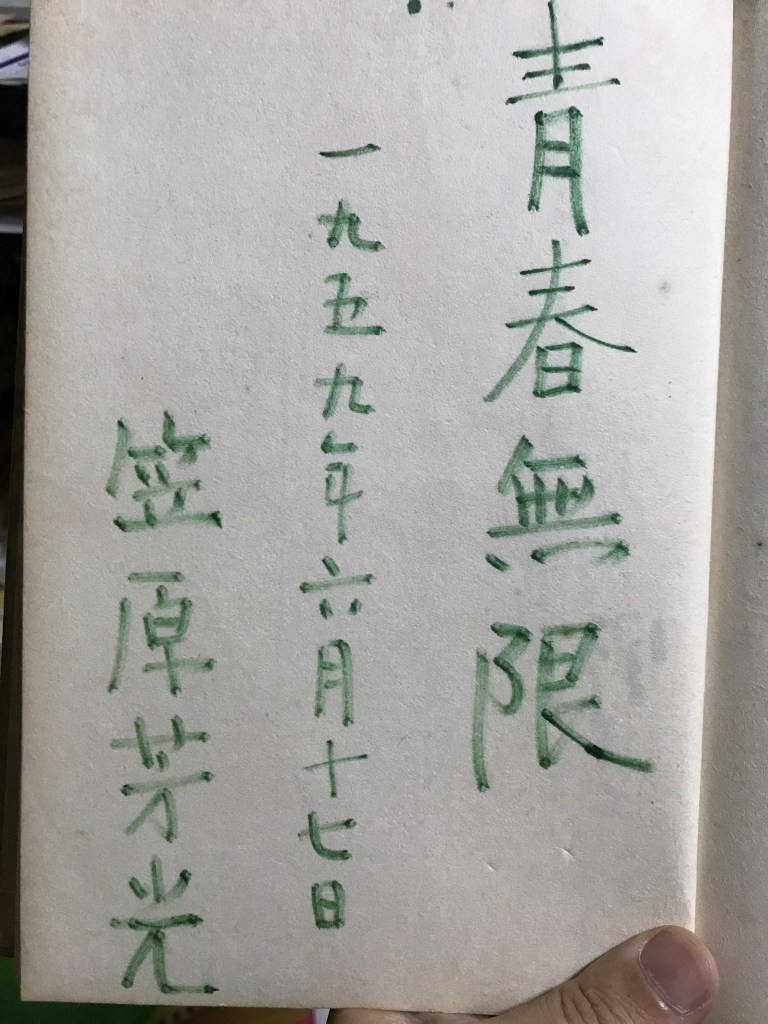 青春無限
一九五九年六月十七日
笠原芳光